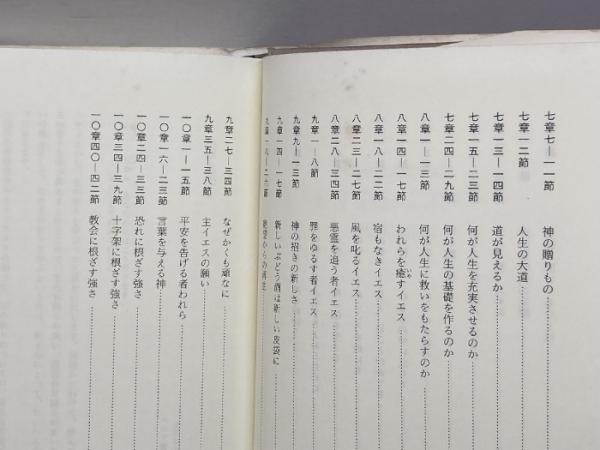 七章七―一一節 神の贈りもの…………
七章一二節 人生の大道…………
七章一三―一四節 道が見えるか…………
七章一五―二三節 何が人生を充実させるのか…………
七章二四―二九節 何が人生の基礎を作るのか…………
八章一―一三節 何が人生に救いをもたらすのか…………
八章一四―一七節 われらを癒すイエス…………
いや
八章一八―二二節 宿もなきイエス…………
八章二三―二七節 風を叱るイエス…………
八章二八―三四節 悪霊を追う者イエス…………
九章一―八節 罪をゆるす者イエス…………
九章九―一三節 神の招きの新しさ…………
九章一四―一七節 新しいぶどう酒は新しい皮袋に…………
九章一八―二六節 絶望からの再生…………
九章二七―三四節 なぜかくも頑なに…………
九章三五―三八節 主イエスの願い…………
一〇章一―一五節 平安を告げる者われら…………
一〇章一六―二三節 言葉を与える神…………
一〇章二四―三三節 恐れに根ざす強さ…………
一〇章三四―三九節 十字架に根ざす強さ…………
一〇章四〇―四二節 教会に根ざす強さ…………